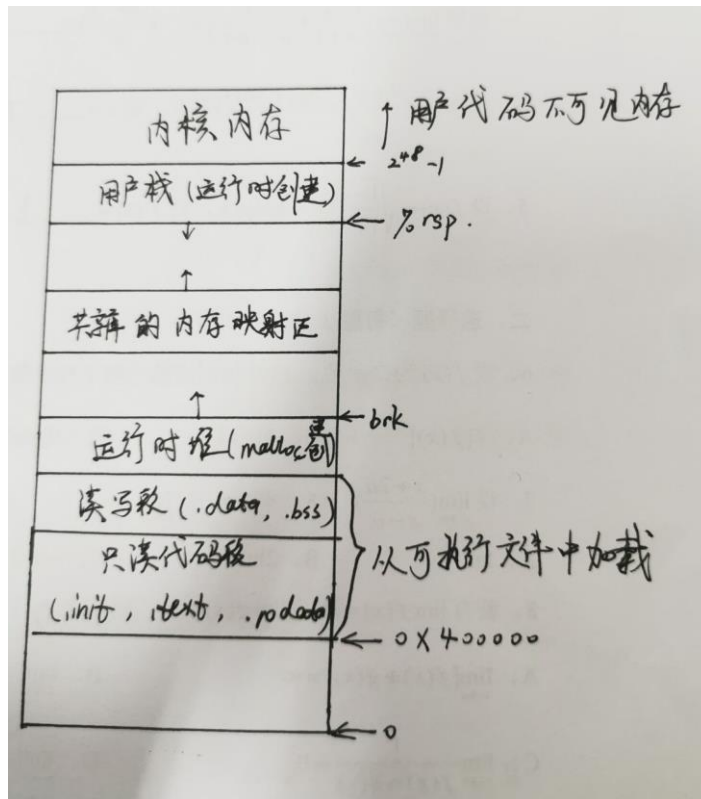 内核内存
↑ 用户代码不可见内存
← 2^48-1
用户栈(运行时创建)
← %rsp.
↓
↑
共享的内存映射区
↑
← brk
运行时堆(malloc创建)
读写段(.data, .bss)
只读代码段
(.init, .text, .rodata)
从可执行文件中加载
← 0X400000
← 0